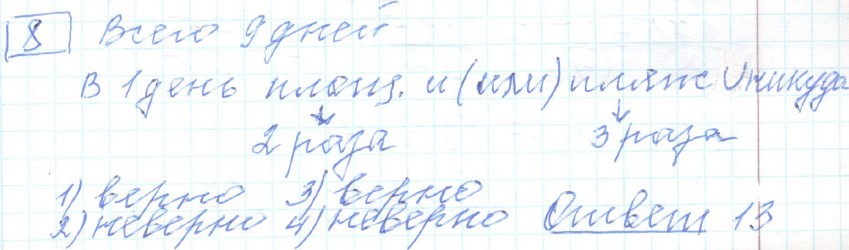 8 Всего 9 дней
В 1 день площ. и (или) пляж Uникуда
2 раза 3 раза
1) верно 3) верно
2) неверно 4) неверно Ответ 13